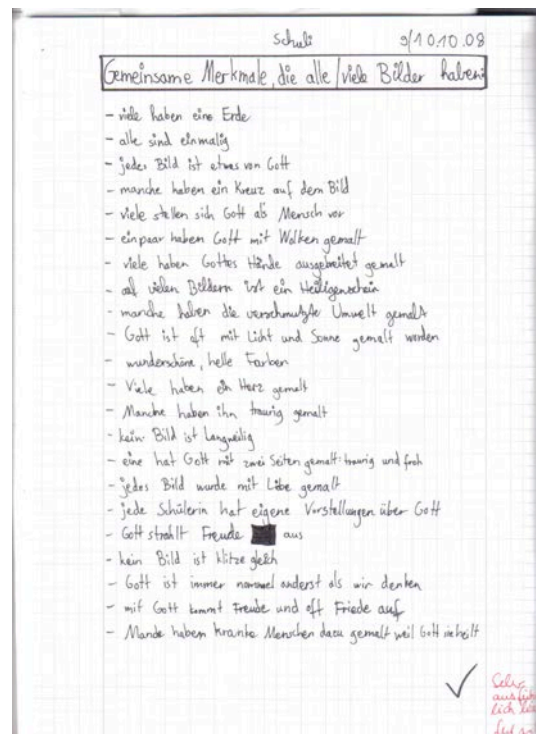 Schuli 9/10.10.08
Gemeinsame Merkmale, die alle/viele Bilder haben:
- viele haben eine Erde
- alle sind einmalig
- jedes Bild ist etwas von Gott
- manche haben ein Kreuz auf dem Bild
- viele stellen sich Gott als Mensch vor
- einpaar haben Gott mit Wolken gemalt
- viele haben Gottes Hände ausgebreitet gemalt
- auf vielen Bildern ist ein Heiligenschein
- manche haben die verschmutzte Umwelt gemalt
- Gott ist oft mit Licht und Sonne gemalt worden
- wunderschöne, helle Farben
- Viele haben ein Herz gemalt
- Manche haben ihn traurig gemalt
- kein Bild ist Langweilig
- eine hat Gott mit zwei Seiten gemalt: traurig und froh
- jedes Bild wurde mit Liebe gemalt
- jede Schülerin hat eigene Vorstellungen über Gott
- Gott strahlt Freude aus
- kein Bild ist klitze gleich
- Gott ist immer nommel anderst als wir denken
- mit Gott kommt Freude und oft Friede auf
- Manche haben kranke Menschen dazu gemalt weil Gott sie heilt
Sehr
ausführ
lich